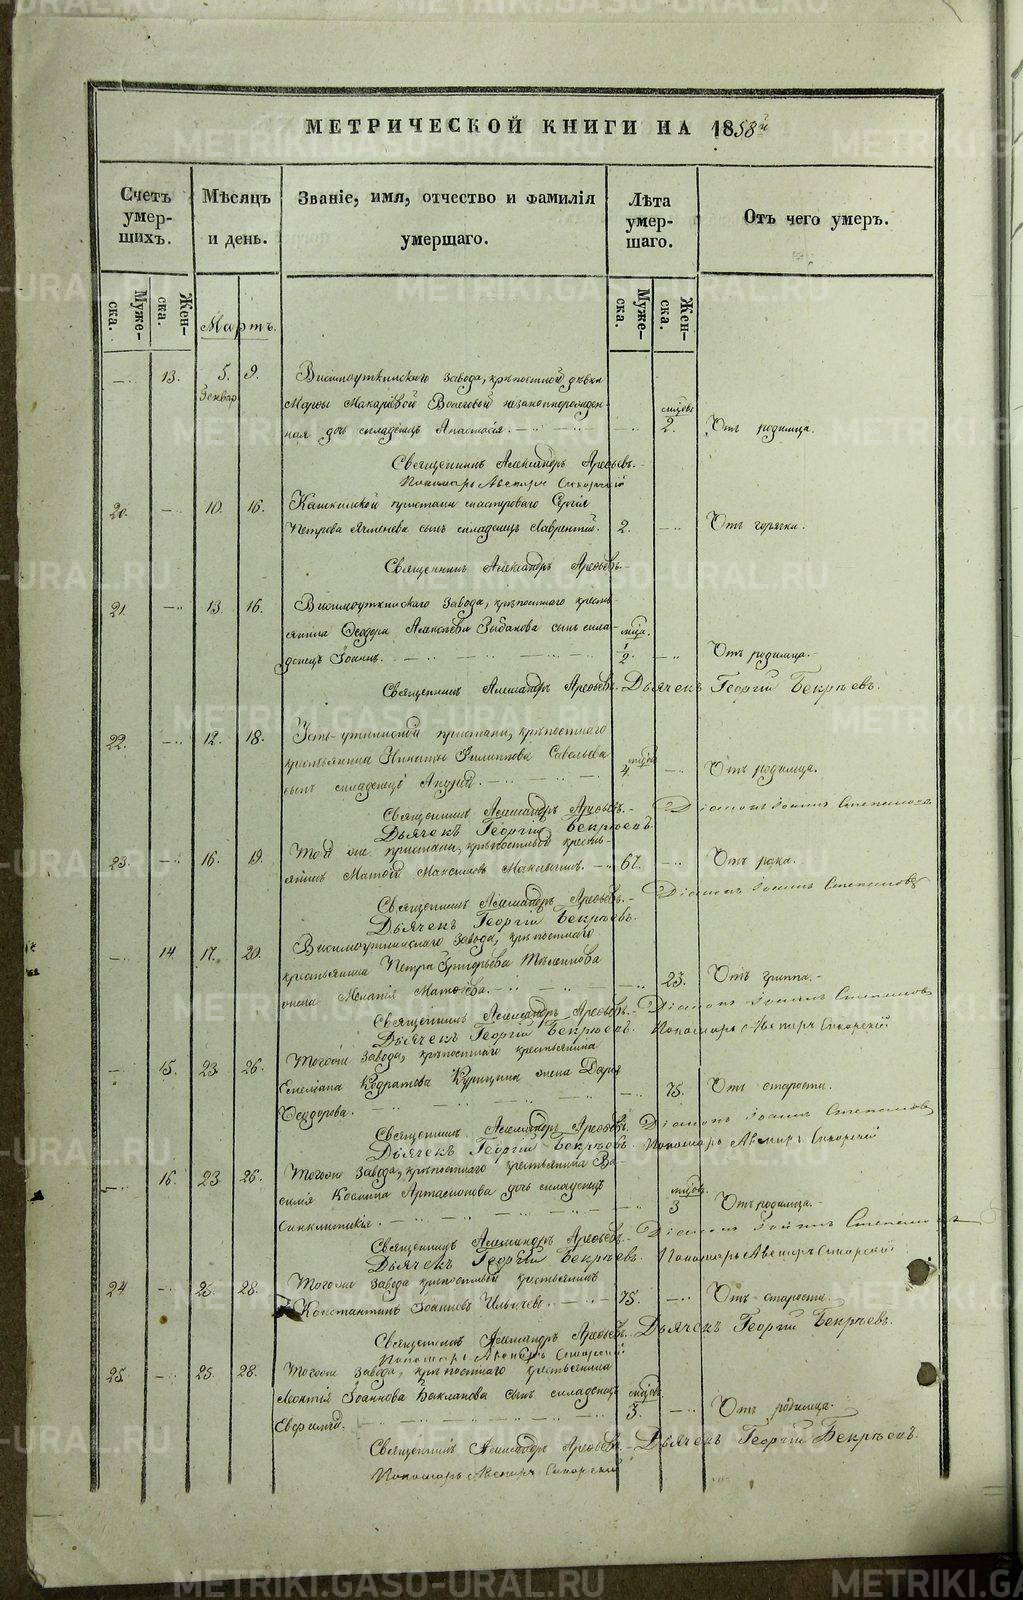 МЕТРИЧЕСКОЙ КНИГИ НА 1858й
Счетъ умер-шихъ.
Мѣсяцъ и день.
Званіе, имя, отчество и фамилія умершаго.
Лѣта умер-шаго.
Отъ чего умеръ.
Муже-ска.
Жен-ска.
Мартъ.
Муже-ска.
Жен-ска.
13. 5. 9. Висимоуткинскаго завода, крѣпостной дѣвки
Марѳы Макаровой незаконнорожден-
ная дочь младенецъ Анастасія. мѣсяц. 2. Отъ родимца.
Священникъ Александръ Арефьевъ.
Пономарь Авениръ Сикорскій
20. 10. 16. Кашкинской пристани Сергія
Петрова сынъ младенецъ Лаврентій. 2. Отъ горячки.
Священникъ Александръ Арефьевъ.
21. 13. 16. Висимоуткинскаго завода, крѣпостнаго кресть-
янина Ѳеодора Алексѣева Рыбакова сынъ мла-
денецъ Іоаннъ. 1/2. Отъ родимца.
Священникъ Александръ Арефьевъ. Дьячекъ Георгій Бекрѣевъ.
22. 12. 18. Усть-уткинской пристани, крѣпостнаго
крестьянина Никиты Филиппова Савельева
сынъ младенецъ Андрей. 4. Отъ родимца.
Священникъ Александръ Арефьевъ. Діаконъ Іоаннъ Степановъ
Дьячекъ Георгій Бекрѣевъ.
23. 16. 19. Той же пристани, крѣпостной кресть-
янинъ Матѳей Максимовъ 67. Отъ рака.
Священникъ Александръ Арефьевъ. Діаконъ Іоаннъ Степановъ
Дьячекъ Георгій Бекрѣевъ.
14. 17. 20. Висимоуткинскаго завода, крѣпостнаго
крестьянина Петра Григорьева
жена Меланія Матѳѣева. 23. Отъ гриппа.
Священникъ Александръ Арефьевъ. Діаконъ Іоаннъ Степановъ
Дьячекъ Георгій Бекрѣевъ. Пономарь Авениръ Сикорскій
15. 23. 26. Тогоже завода, крѣпостнаго крестьянина
Емеліана Кодратова Курицына жена Дарья
Ѳеодорова. 75. Отъ старости.
Священникъ Александръ Арефьевъ. Діаконъ Іоаннъ Степановъ
Дьячекъ Георгій Бекрѣевъ. Пономарь Авениръ Сикорскій
16. 23. 26. Тогоже завода, крѣпостнаго крестьянина Ва-
силія Космина Артамонова дочь младенецъ
Синклитикія. 3 Отъ родимца.
Священникъ Александръ Арефьевъ. Діаконъ Іоаннъ Степановъ
Дьячекъ Георгій Бекрѣевъ. Пономарь Авениръ Сикорскій
24 25. 28. Тогоже завода крѣпостной крестьянинъ
Константинъ Іоанновъ Ильичевъ. 75. Отъ старости.
Священникъ Александръ Арефьевъ. Дьячекъ Георгій Бекрѣевъ.
Пономарь Авениръ Сикорскій
25. 25. 28. Тогоже завода, крѣпостнаго крестьянина
Леонтія Іоаннова Бакланова сынъ младенецъ
Евфимій. 3. Отъ родимца.
Священникъ Александръ Арефьевъ. Дьячекъ Георгій Бекрѣевъ.
Пономарь Авениръ Сикорскій
METRIKI.GASO-URAL.RU